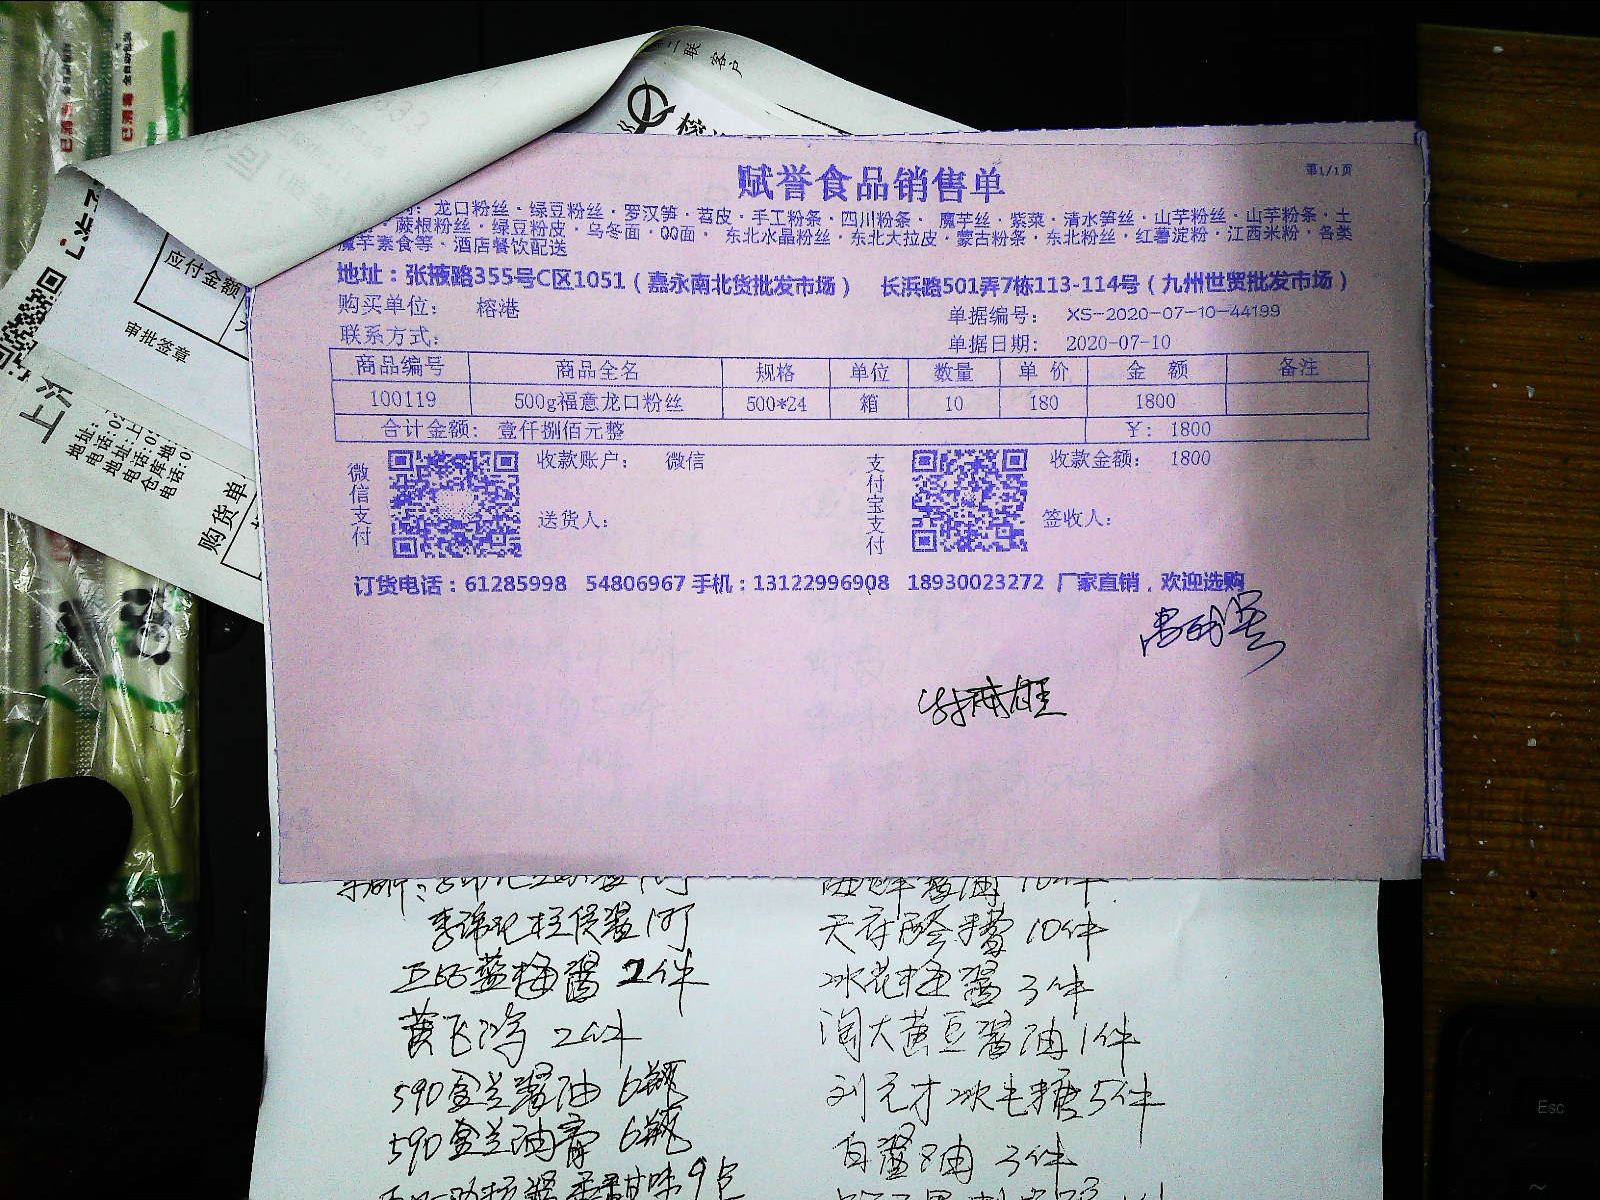 三联 客户
榕港
应付金额
审批签章
地址:
电话:02
地址:上
电话:0
仓库地:
电话:0
购货单
赋誉食品销售单
第1/1页
龙口粉丝·绿豆粉丝·罗汉笋·苕皮·手工粉条·四川粉条· 魔芋丝·紫菜·清水笋丝·山芋粉丝·山芋粉条·土
蕨根粉丝·绿豆粉皮·乌冬面·QQ面· 东北水晶粉丝·东北大拉皮·蒙古粉条·东北粉丝·红薯淀粉·江西米粉·各类
魔芋素食等·酒店餐饮配送
地址:张掖路355号C区1051(嘉永南北货批发市场) 长浜路501弄7栋113-114号(九州世贸批发市场)
购买单位: 榕港 单据编号: XS-2020-07-10-44199
联系方式: 单据日期: 2020-07-10
商品编号 商品全名 规格 单位 数量 单 价 金 额 备注
100119 500g福意龙口粉丝 500*24 箱 10 180 1800
合计金额: 壹仟捌佰元整 ¥: 1800
微信支付 收款账户: 微信 支付宝支付 收款金额: 1800
送货人: 签收人:
订货电话:61285998 54806967 手机:13122996908 18930023272 厂家直销,欢迎选购
李锦记柱侯酱 1什 天府酸 10件
蓝梅酱 2件 冰花梅酱 3件
黄飞鸿 2件 淘大黄豆酱油 1件
590金兰酱油 6瓶 刘元才冰毛糖 5件
590金兰油膏 6瓶 白酱油 3件